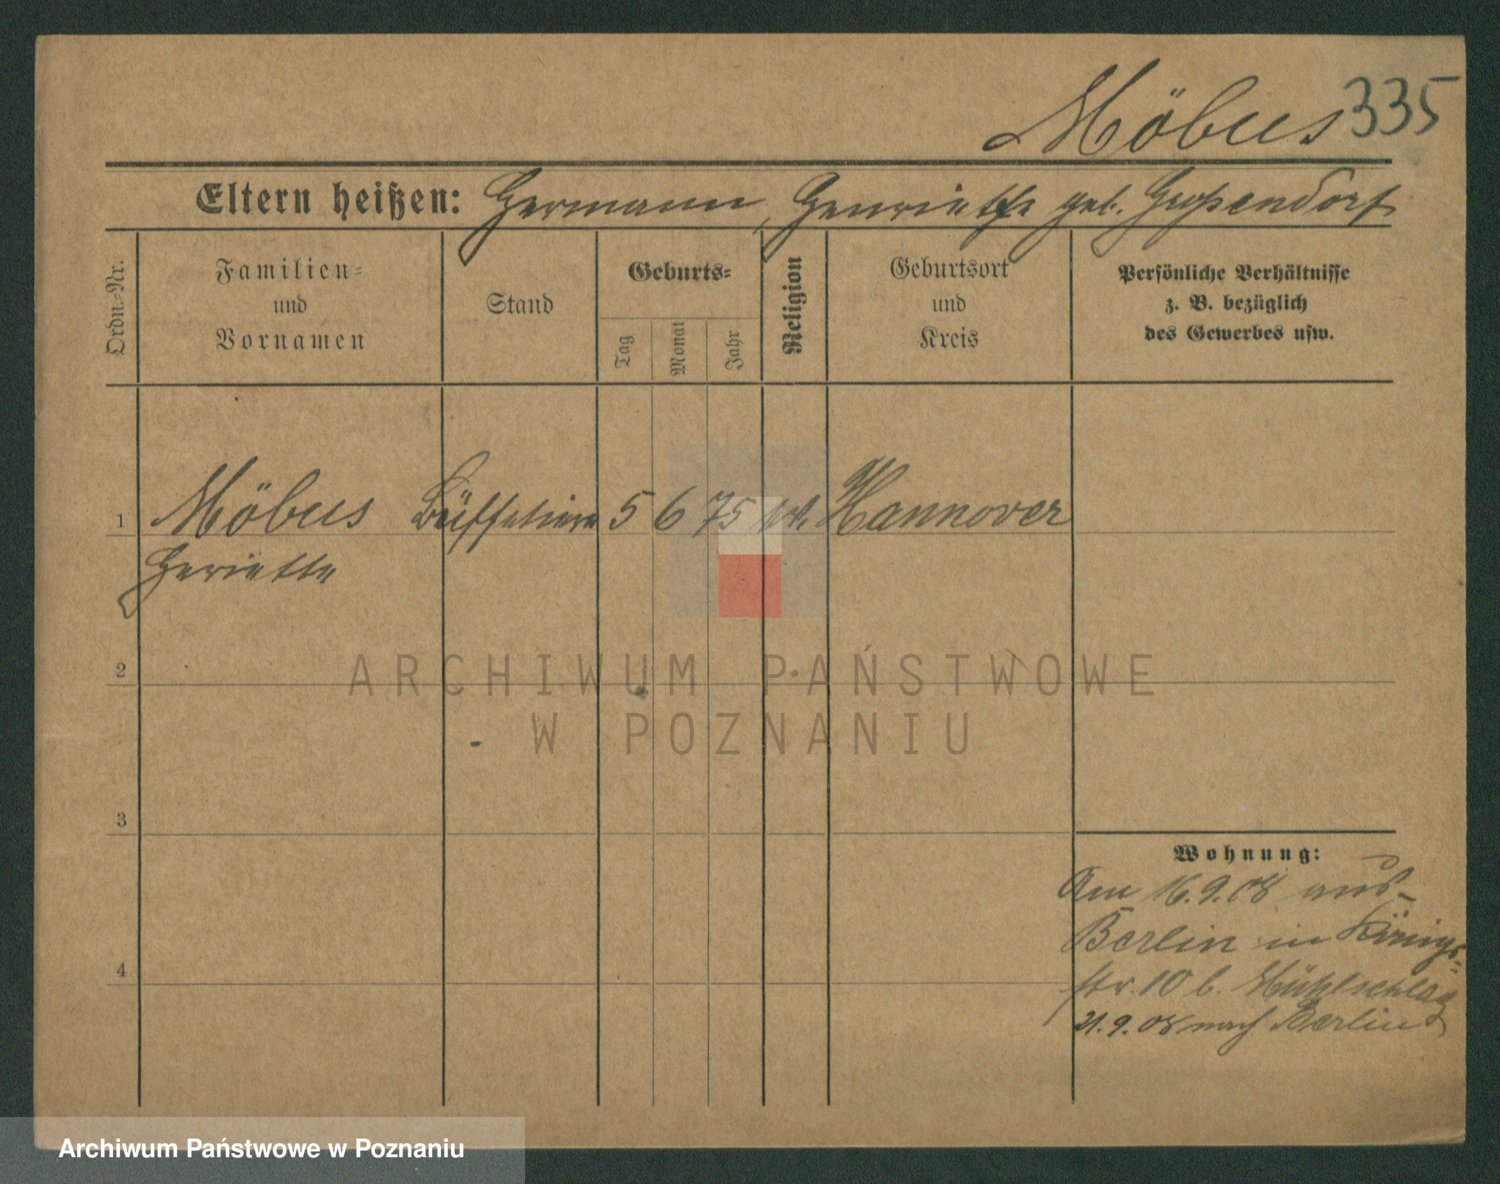 Möbus 335
Eltern heißen: Hermann, Henriette geb. Grupendorf
Ordn.-Nr.
Familien-
und
Vornamen
Stand
Geburts-
Tag
Monat
Jahr
Religion
Geburtsort
und
Kreis
Persönliche Verhältnisse
z. B. bezüglich
des Gewerbes usw.
1 Möbus Büffetiere 5 6 75 Hannover
Heriette
2
3
4
Wohnung:
Am 16.9.08 aus
Berlin in Königs-
str. 10 b. Mühlschlag
21.9.08 nach Berlin
ARCHIWUM PAŃSTWOWE
W POZNANIU
Archiwum Państwowe w Poznaniu